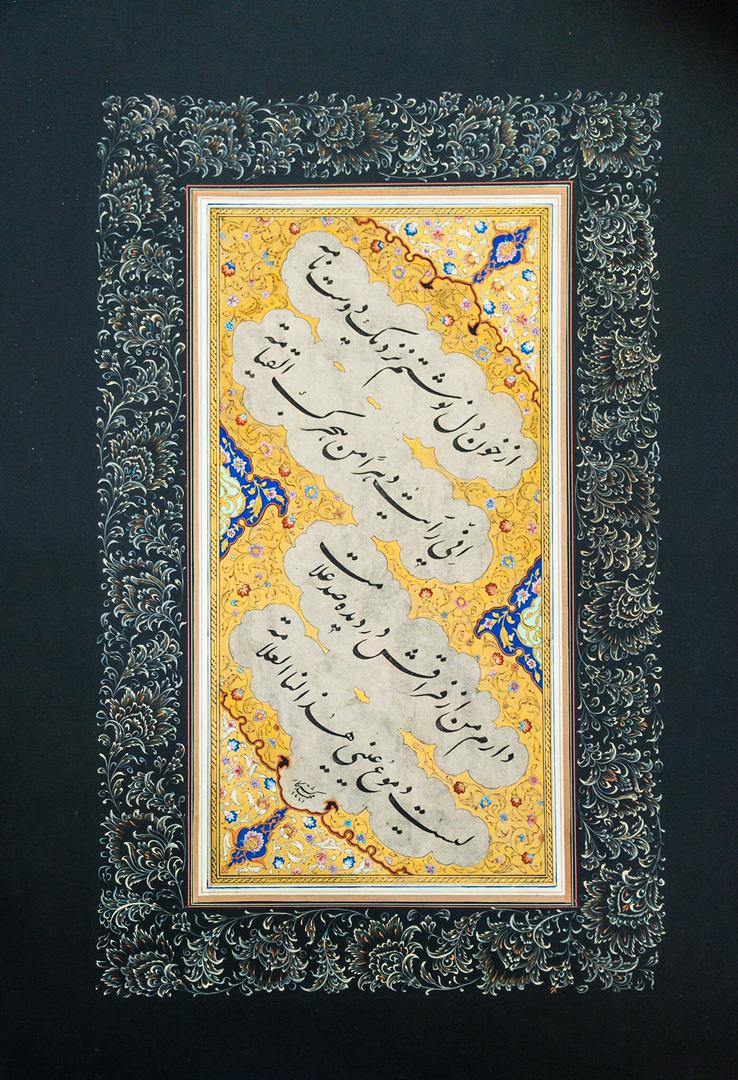 از خون دل نوشتم نزدیک دوست نامه
اِنّی رَاَیتُ دهراً من هجرک القیامة
دارم من از فراقش در دیده صد علامت
لیست دموع عینی هذا لنا العلامة